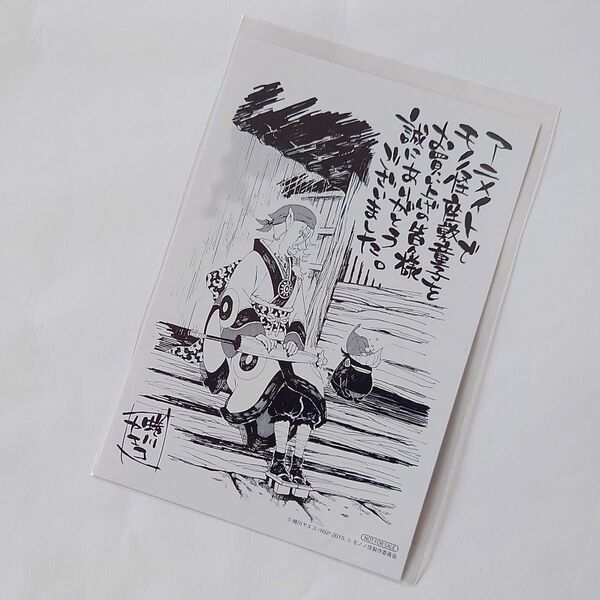 アニメイトで
モノノ怪座敷童子を
お買い上げの皆様
誠にありがとう
ございました。
蜷川ヤエコ
©蜷川ヤエコ/NSP 2015, ©モノノ怪製作委員会
NOT FOR SALE